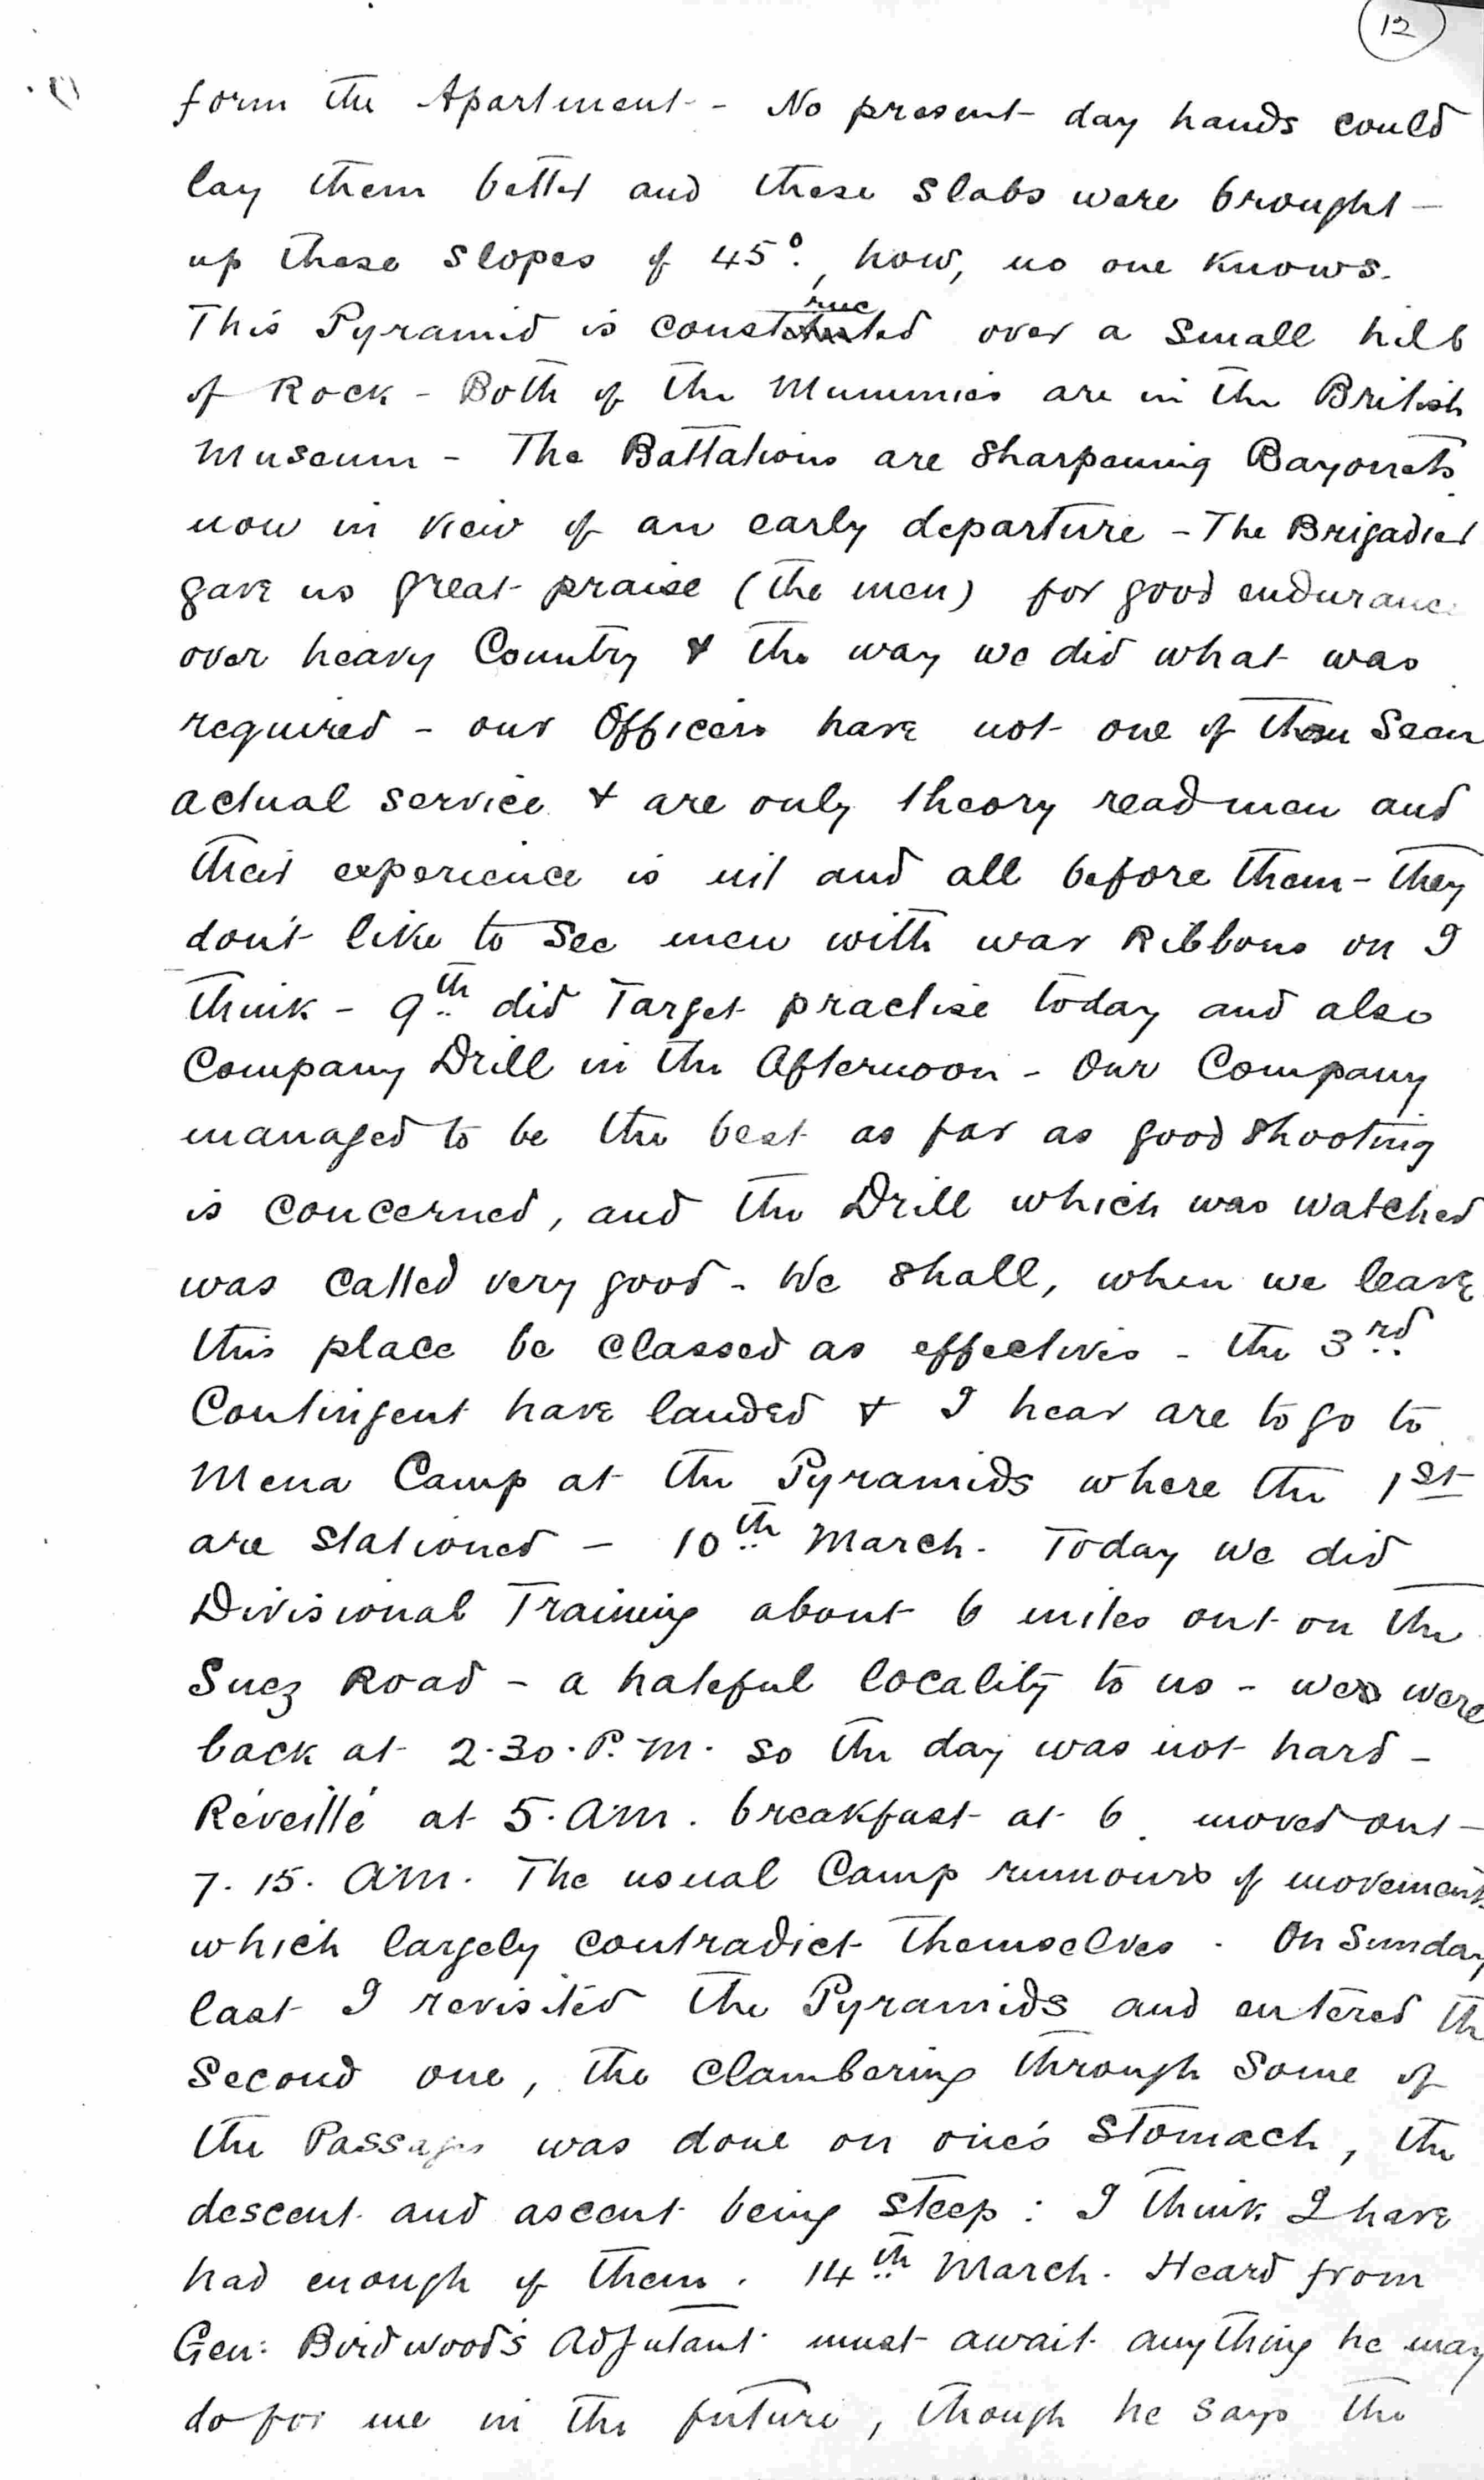 12
form the Apartment - No present day hands could
lay them better and these slabs were brought -
up these slopes of 45°, how, no one knows.
This Pyramid is constructed over a small hill
of Rock - Both of the Mummies are in the British
Museum - The Battalions are sharpening Bayonets
now in view of an early departure - The Brigadier
gave us great praise (the men) for good endurance
over heavy Country & the way we did what was
required - our Officers have not one of them seen
actual service & are only theory read men and
their experience is nil and all before them - they
don't like to see men with war Ribbons on I
think - 9th did Target practise today and also
Company Drill in the Afternoon - Our Company
managed to be the best as far as good shooting
is concerned, and the Drill which was watched
was called very good - We shall, when we leave
this place be classed as effectives - the 3rd
Contingent have landed & I hear are to go to
Mena Camp at the Pyramids where the 1st
are stationed - 10th March. Today we did
Divisional Training about 6 miles out on the
Suez Road - a hateful locality to us - we were
back at 2.30. P.M. so the day was not hard -
Réveillé at 5. am. breakfast at 6. moved out -
7. 15. am. The usual Camp rumours of movements
which largely contradict themselves. On Sunday
last I revisited the Pyramids and entered the
second one, the clambering through some of
the Passages was done on one's stomach, the
descent and ascent being steep: I think I have
had enough of them. 14th March. Heard from
Gen: Birdwood's Adjutant must await anything he may
do for me in the future, though he says the